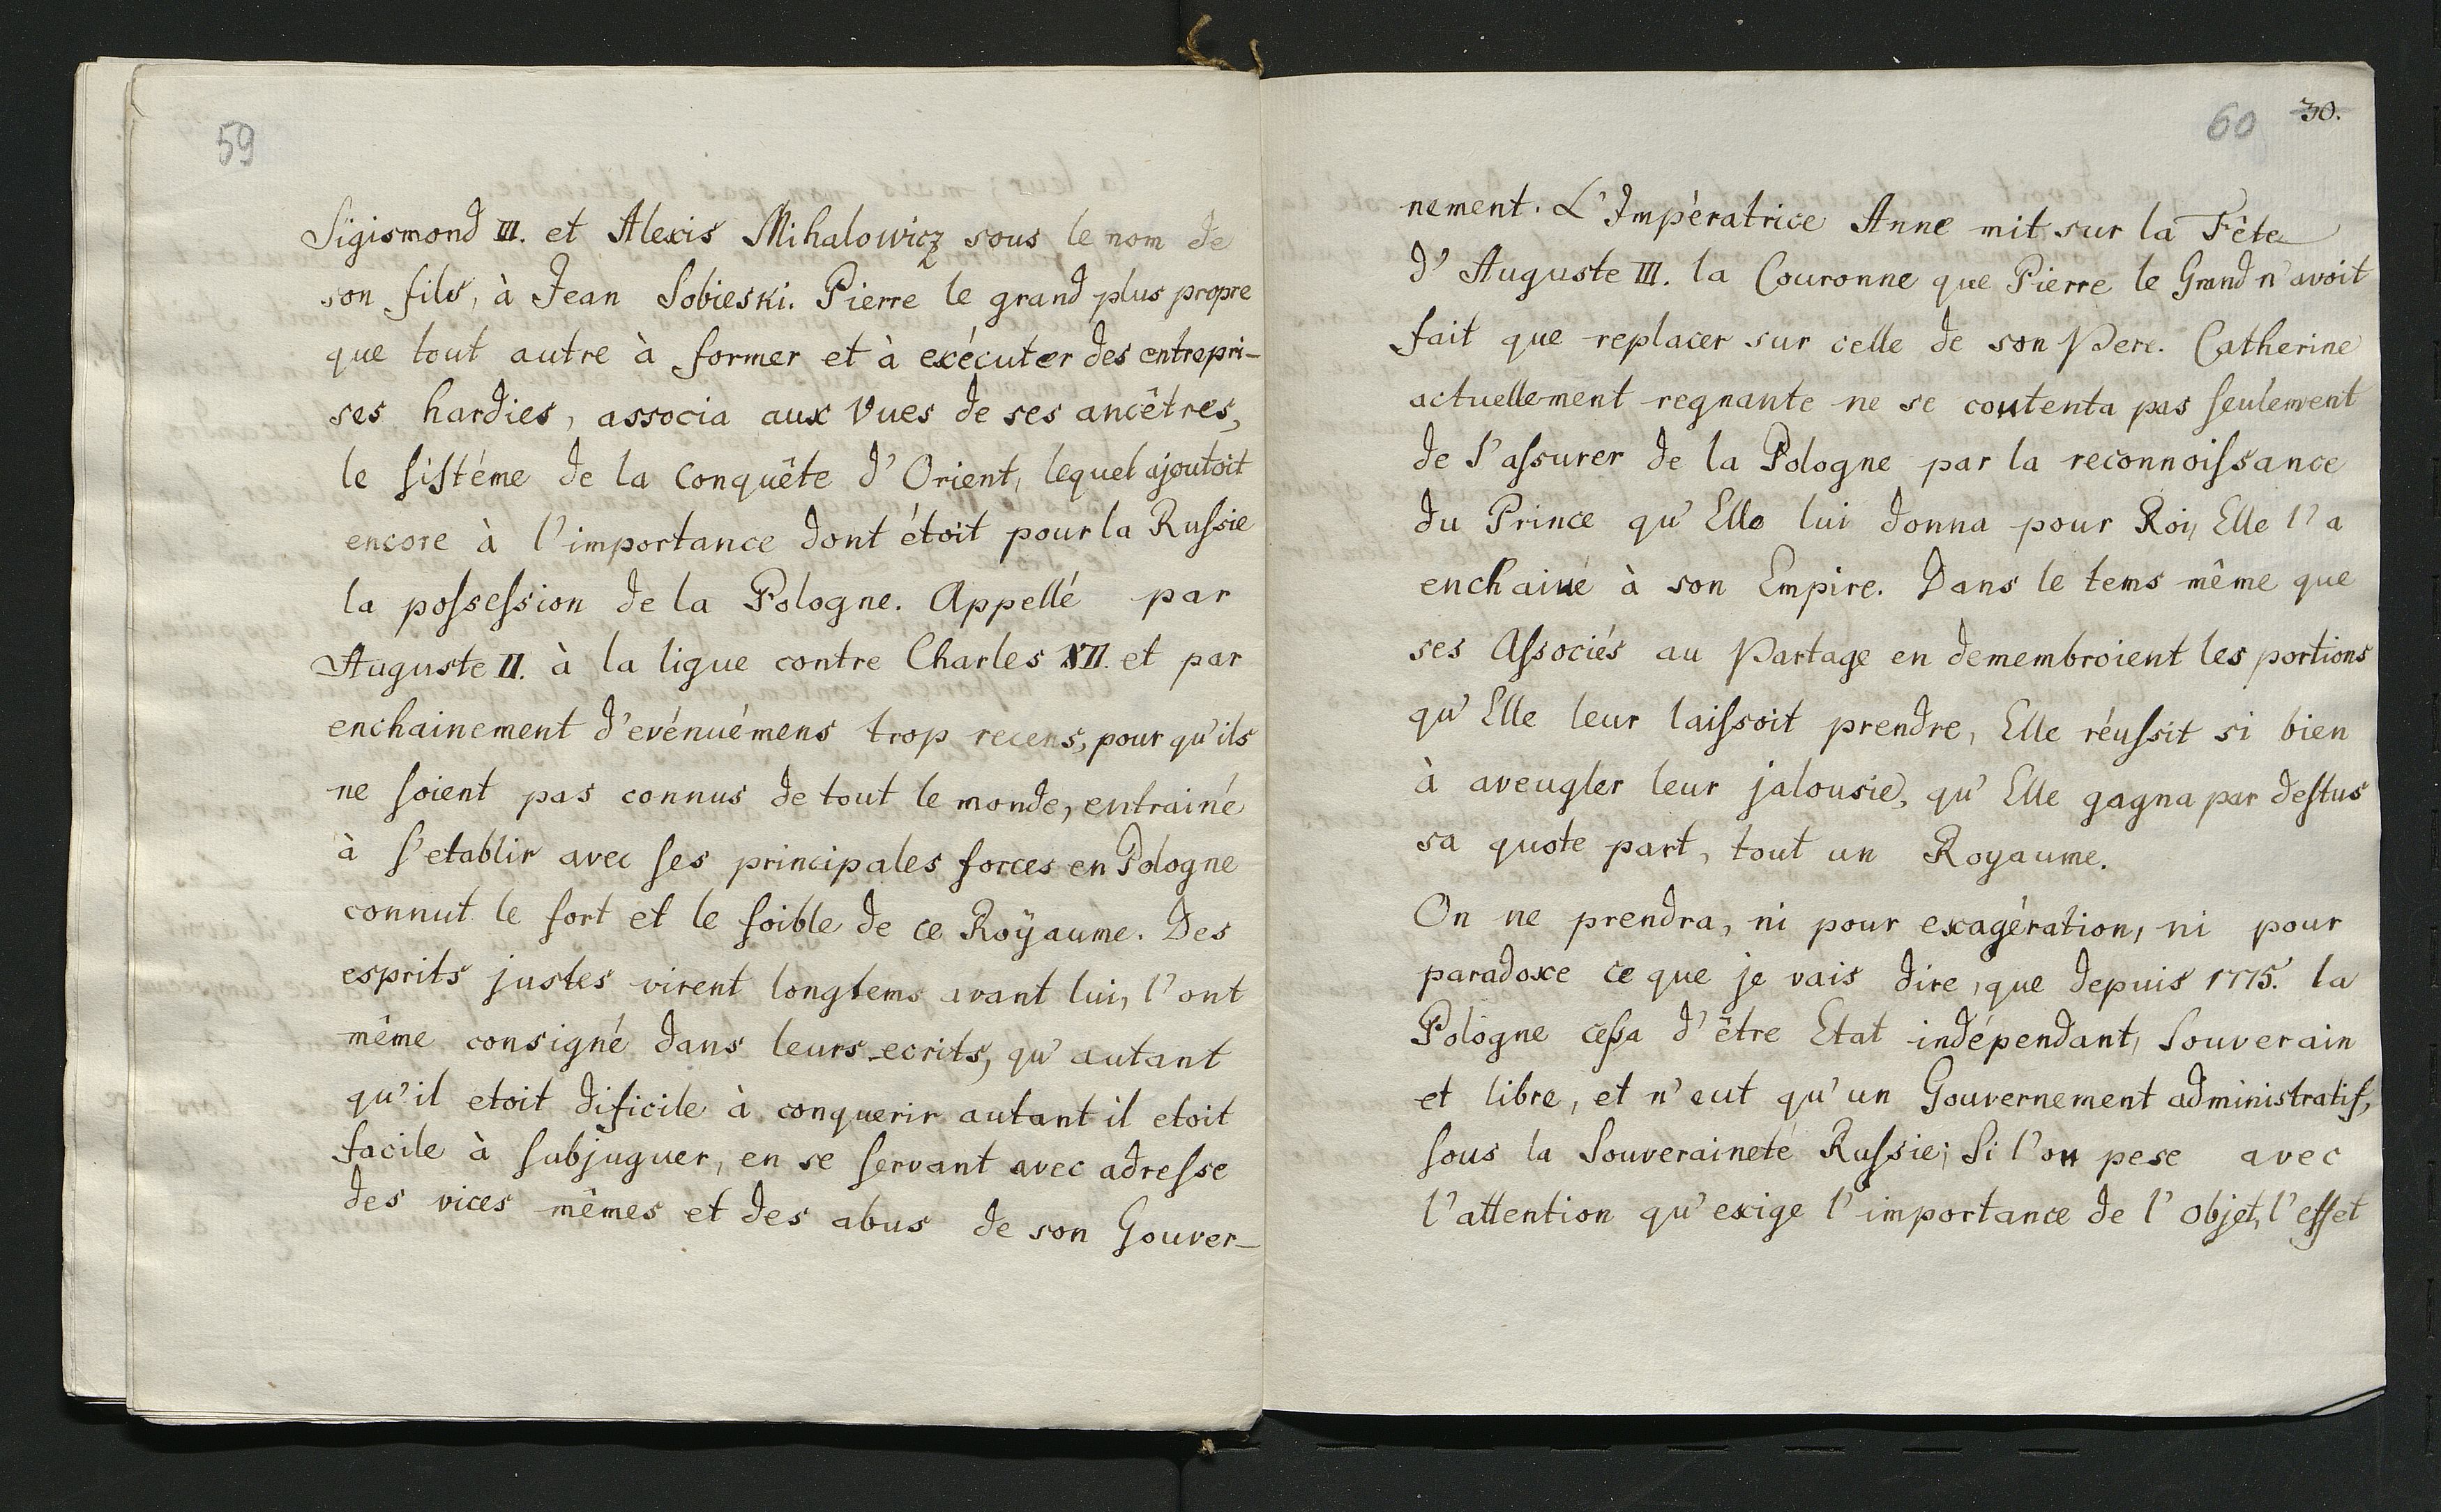 59
Sigismond III. et Alexis Mihalowicz sous le nom de
son fils, à Jean Sobieski. Pierre le grand plus propre
que tout autre à former et à exécuter des entrepri-
ses hardies, associa aux vues de ses ancêtres,
le sistéme de la Conquête d'Orient, lequel ajoutoit
encore à l'importance dont étoit pour la Russie
la possession de la Pologne. Appellé par
Auguste II. à la ligue contre Charles XII. et par
enchainement d'evénuémens trop recens, pour qu'ils
ne soient pas connus de tout le monde, entrainé
à s'etablir avec ses principales forces en Pologne
connut le fort et le foible de ce Roÿaume. Des
esprits justes virent longtems avant lui, l'ont
même consigné dans leurs ecrits, qu'autant
qu'il etoit dificile à conquerir autant il etoit
facile à subjuguer, en se servant avec adresse
des vices mêmes et des abus de son Gouver-
60 30.
nement. L'Impératrice Anne mit sur la Tête
d'Auguste III. la Couronne que Pierre le Grand n'avoit
fait que replacer sur celle de son Pere. Catherine
actuellement regnante ne se contenta pas seulement
de s'assurer de la Pologne par la reconnoissance
du Prince qu'Elle lui donna pour Roi, Elle l'a
enchainé à son Empire. Dans le tems même que
ses Associés au Partage en demembroient les portions
qu'Elle leur laissoit prendre, Elle réussit si bien
à aveugler leur jalousie, qu'Elle gagna par destus
sa quote part, tout un Royaume.
On ne prendra, ni pour exagération, ni pour
paradoxe ce que je vais dire, que depuis 1775. la
Pologne cessa d'être Etat indépendant, Souverain
et libre, et n'eut qu'un Gouvernement administratif,
sous la Souveraineté Russie; Si l'on pese avec
l'attention qu'exige l'importance de l'objet, l'effet